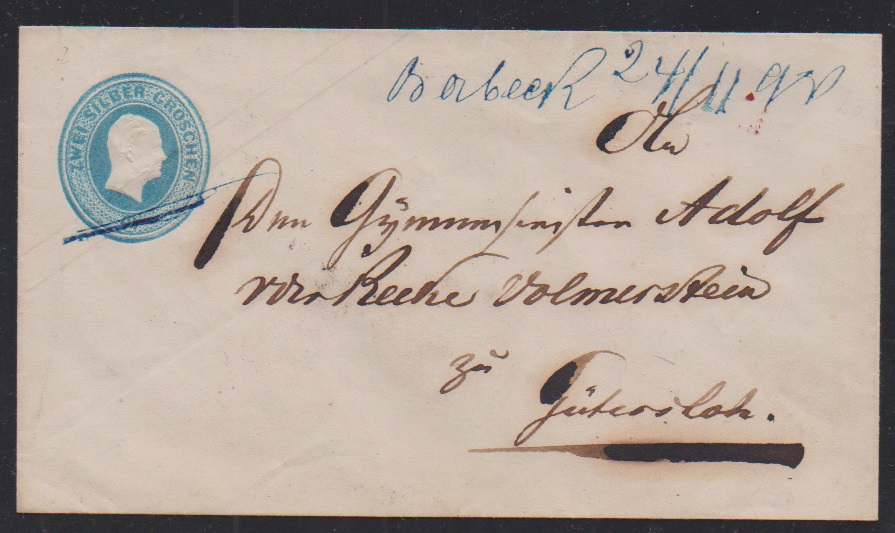 ZWEI SILBER GROSCHEN
Borbeck 24/11 9V
An
Den Gymnasiasten Adolf
von der Recke Volmerstein
zu
Gütersloh.